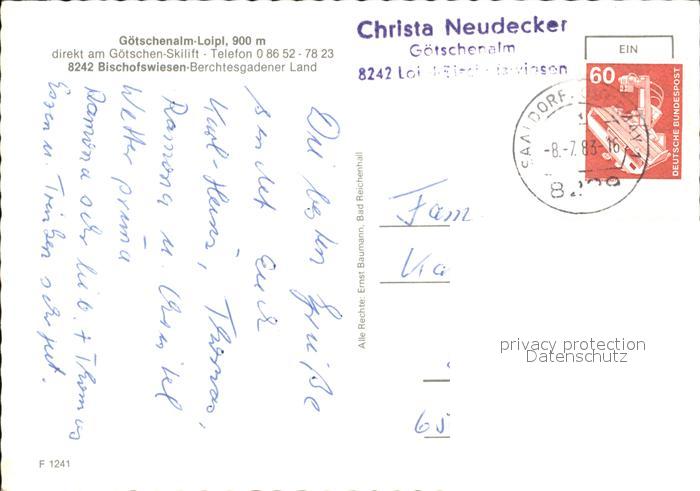 Götschenalm-Loipl, 900 m
direkt am Götschen-Skilift - Telefon 0 86 52 - 78 23
8242 Bischofswiesen-Berchtesgadener Land
Christa Neudecker
Götschenalm
8242 Loi
EIN
60
DEUTSCHE BUNDESPOST
SAALDORF
-8.-7.83-16
Die besten Grüße
sendet Euch
Karl-Heinz, Thomas,
Ramona u.
Wetter prima
Ramona sehr lieb. + Thomas
Essen u. Trinken sehr gut.
Alle Rechte: Ernst Baumann, Bad Reichenhall
Fam
Ka
6
privacy protection
Datenschutz
F 1241